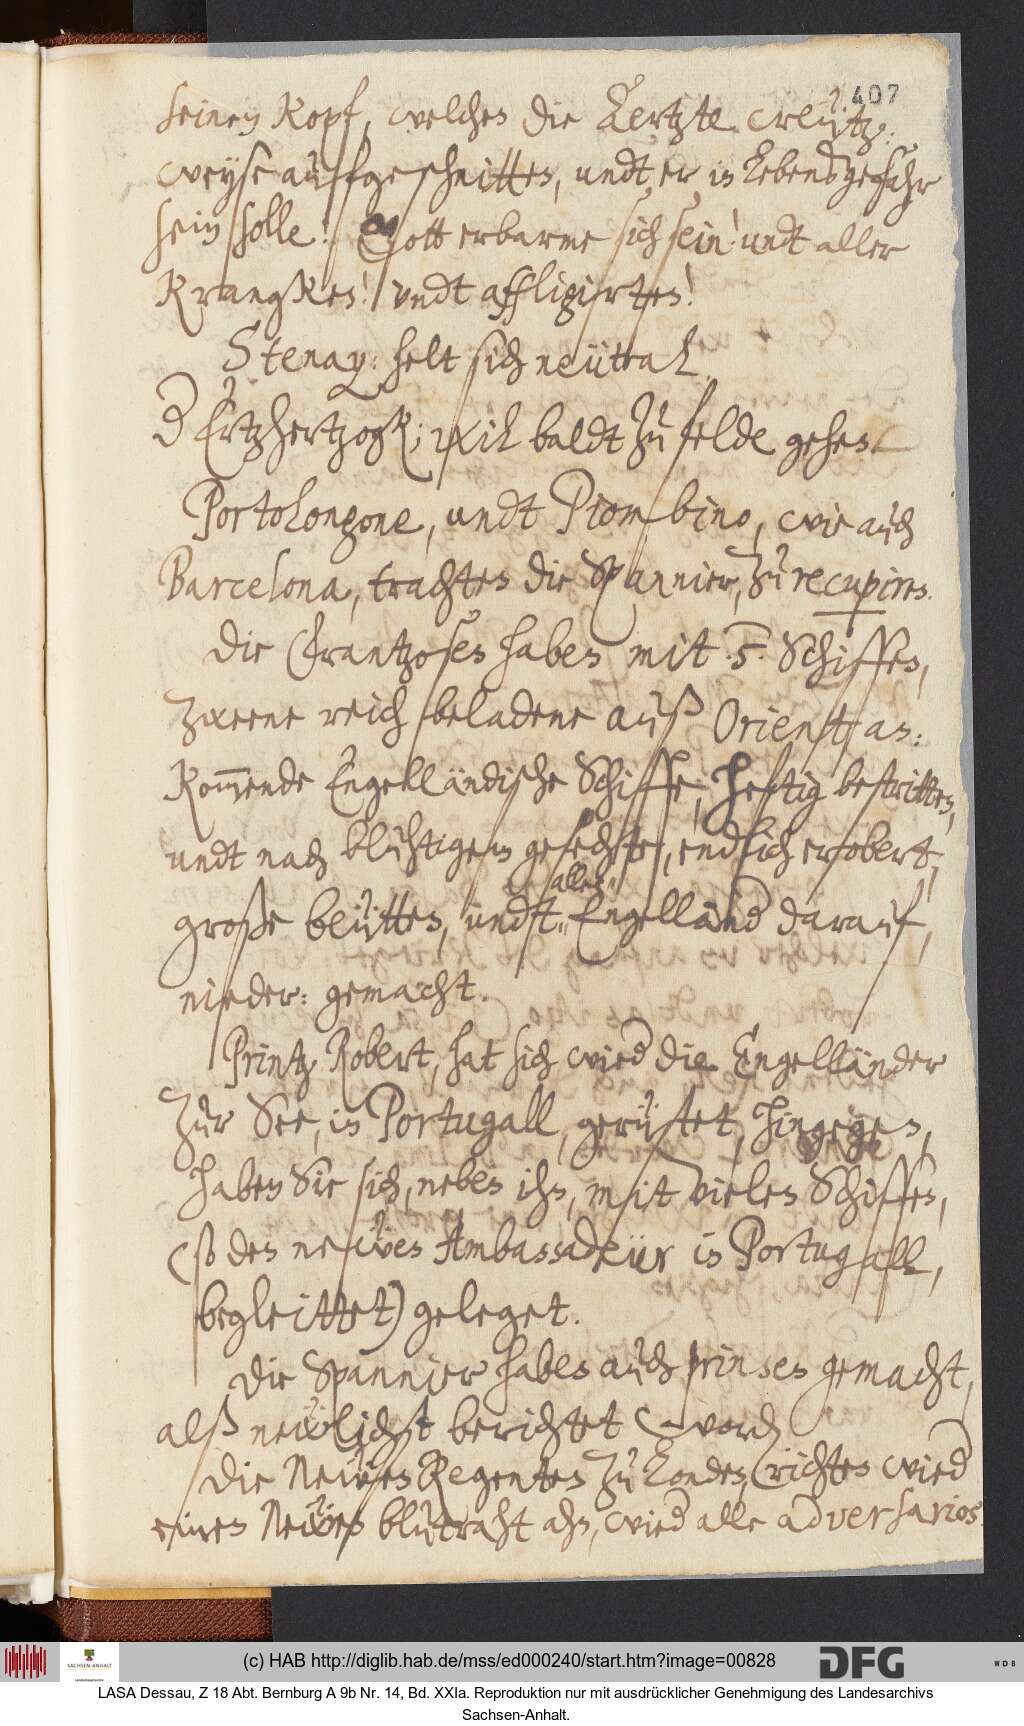 407
seinen Kopf, welchen die Aertzte creütz:
weyse auffgeschnitten, undt er in Lebensgefahr
sein solle! Gott erbarme sich sein! undt aller
Krangken! undt affligirten!
Stenay: helt sich neütral.
D Ertzhertzogk; wil baldt zu felde gehen.
Portolongone, undt Piombino, wie auch
Barcelona, trachten die Spannier, zu recuperiren.
Die Frantzosen haben mit .5. Schiffen,
zweene reich beladene auß Orient an:
kom̅ende Engelländische Schiffe, heftig bestritten,
undt nach bluhtigem gefechte, endlich erobert,
allen
große beütten, undt Engelländ darauf,
nieder: gemacht.
Printz Robert, hat sich wied die Engelländer
zur See, in Portugall, gerüstet, hingegen,
haben Sie sich, neben ihn, mit vielen Schiffen,
(so den newen Ambassadeür in Portugall,
begleittet) geleget.
Die Spannier haben auch prinsen gemacht,
alß newlichst berichtet word
Die Newen Regenten zu Londen, richten wied
einen Newen bluhtraht an, wied alle adversarios.
(c) HAB http://diglib.hab.de/mss/ed000240/start.htm?image=00828
SACHSEN-ANHALT
DFG
WDB
LASA Dessau, Z 18 Abt. Bernburg A 9b Nr. 14, Bd. XXIa. Reproduktion nur mit ausdrücklicher Genehmigung des Landesarchivs
Sachsen-Anhalt.